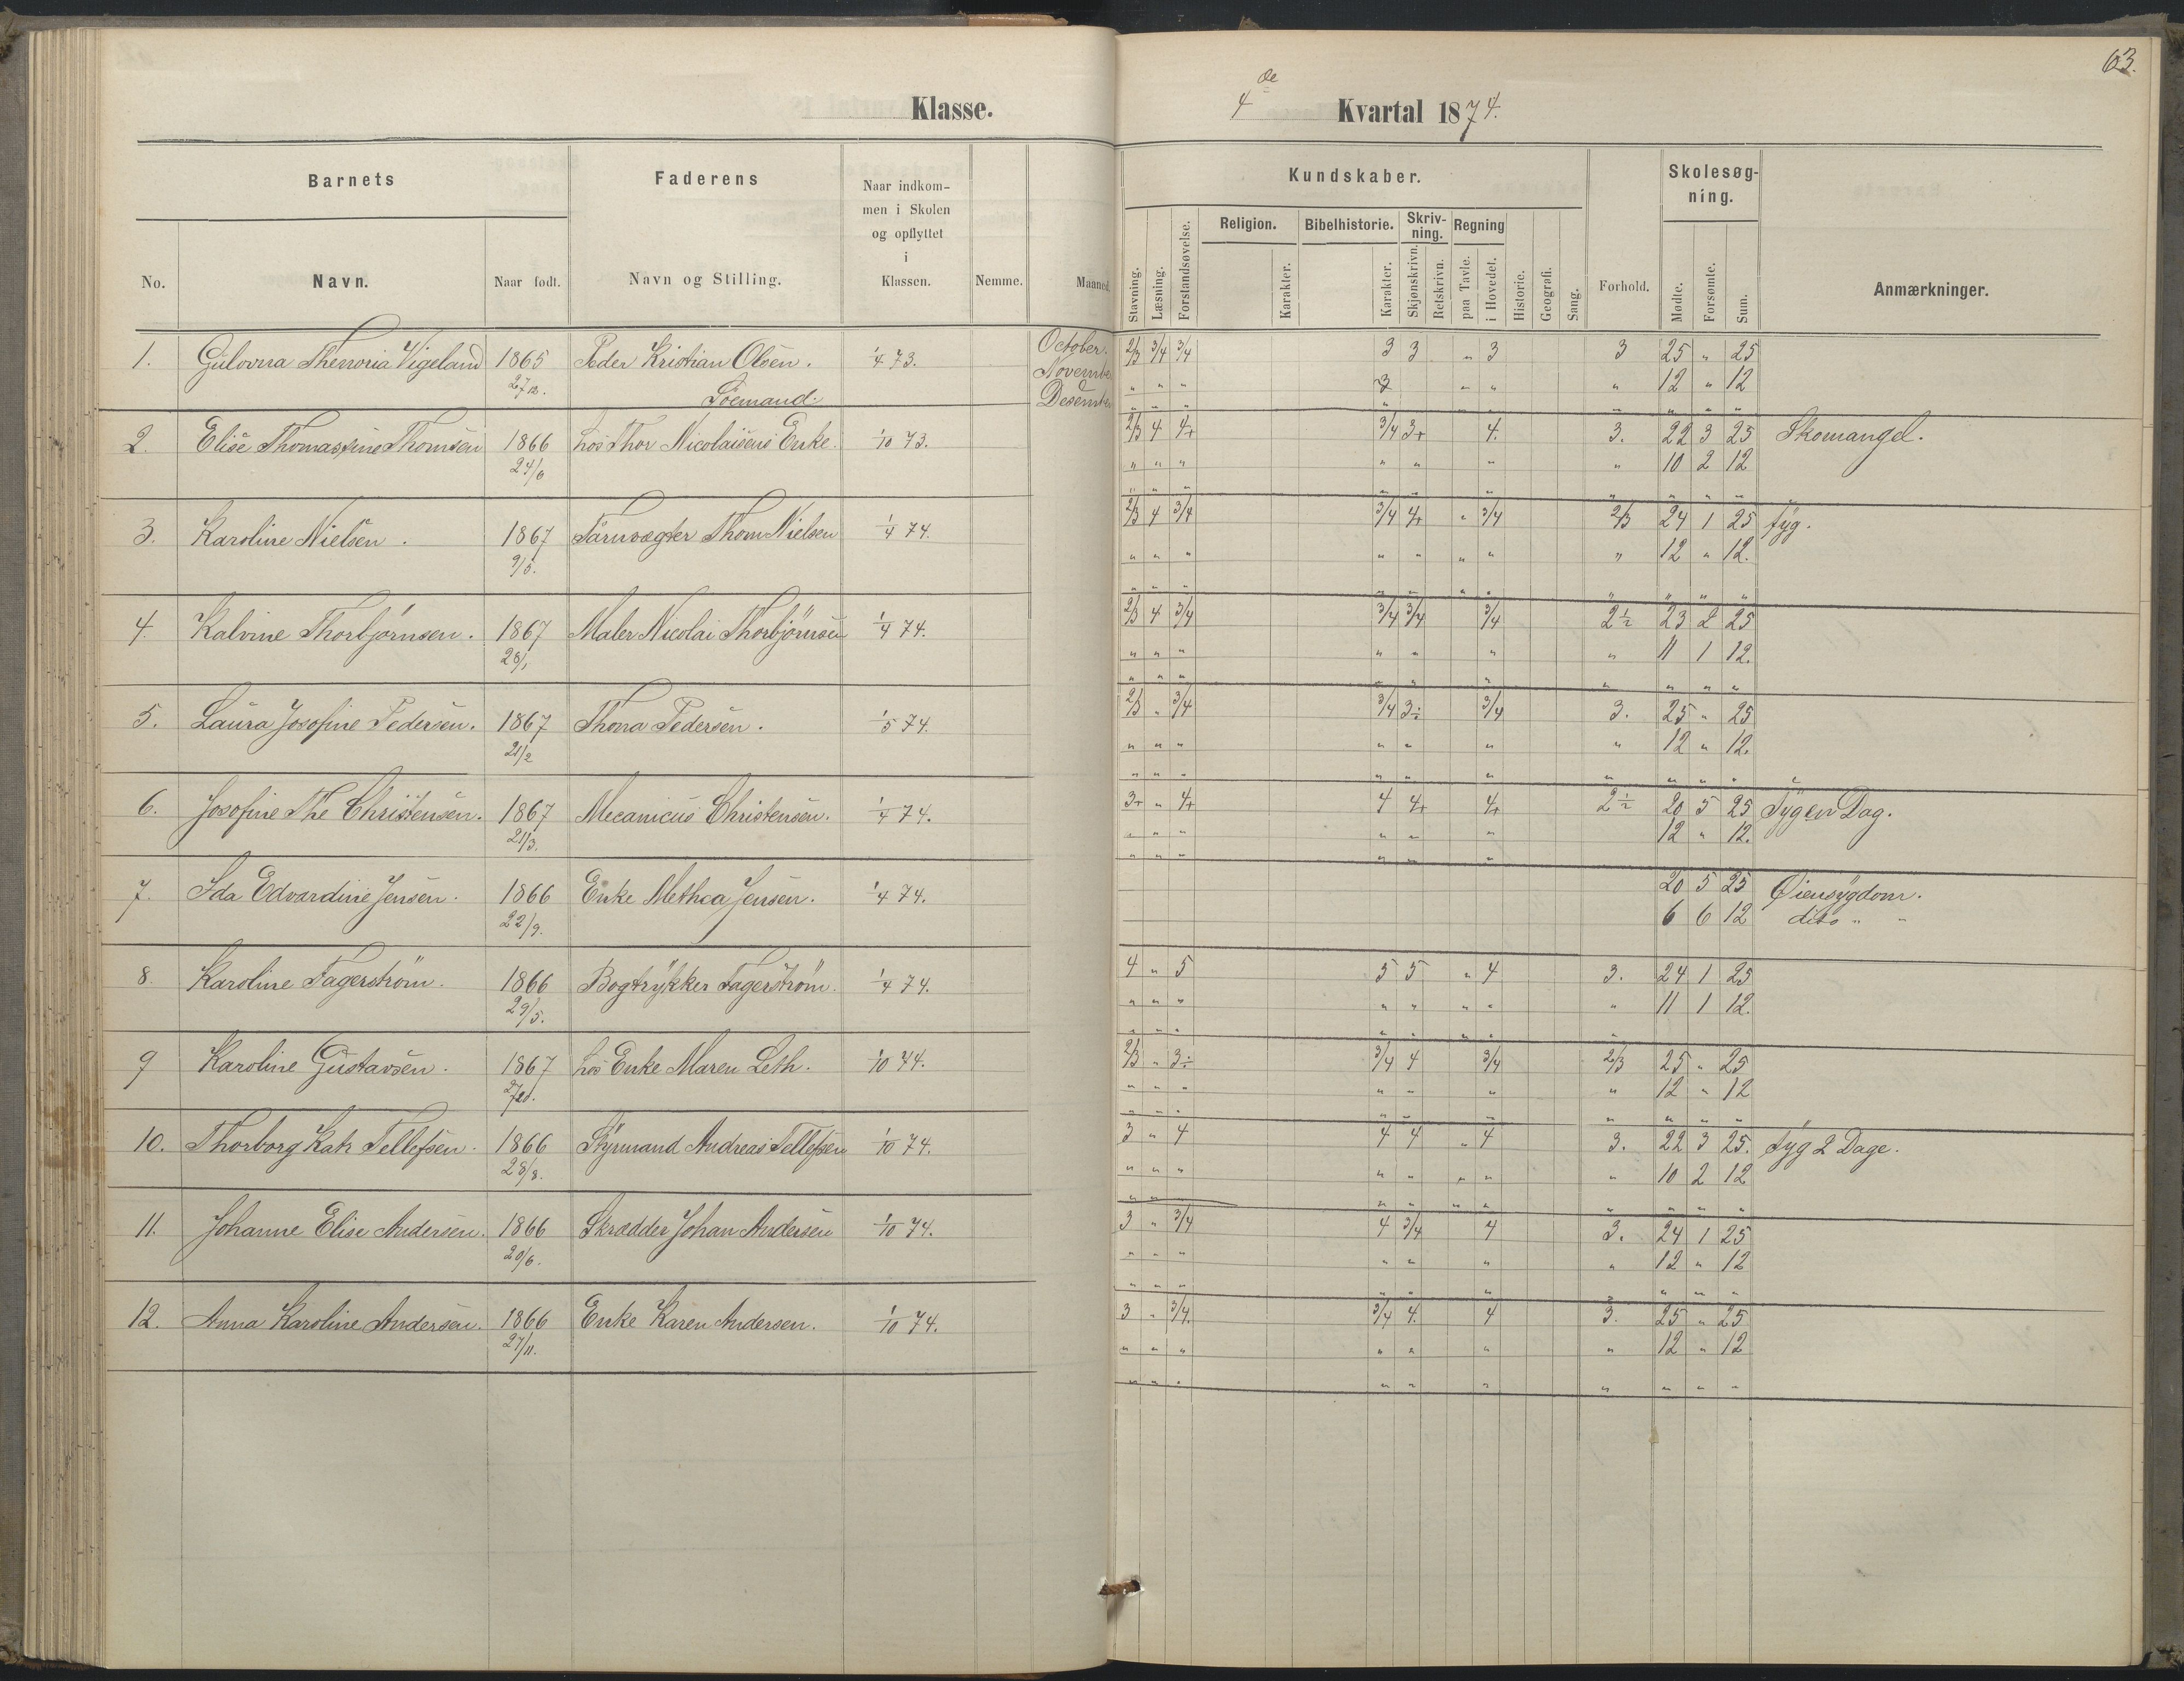 63.
Klasse.
4de Kvartal 1874.
Barnets
Faderens
Naar indkom-
men i Skolen
og opflyttet
i
Klassen.
No.
Navn.
Naar født.
Navn og Stilling.
Nemme.
Maaned.
Kundskaber.
Religion.
Bibelhistorie.
Skriv-
ning.
Regning
Stavning.
Læsning.
Forstandsøvelse.
Karakter.
Karakter.
Skjønskrivn.
Retskrivn.
paa Tavle.
i Hovedet.
Historie.
Geografi.
Sang.
Forhold.
Skolesøg-
ning.
Mødte.
Forsømte.
Sum.
Anmærkninger.
1. Vigeland 1865 Peder Kristian Olsen. 1/4 73. October. 2/3 3/4 3/4 3 3 " 3 3 25 " 25
27/12. Söemand. November " " " 3 " " " 12 " 12
Desember
2. Elise Thomassine Thomsen 1866 hos Thor Nicolaisens Enke. 1/10 73. 2/3 4 4+ 3/4 3+ 4. 3. 22 3 25 Skomangel.
24/6 " " " " " " " 10 2 12
3. Karoline Nielsen. 1867 Taarnvægter Thom Nielsen 1/4 74. 2/3 4 3/4 3/4 4+ " 3/4 2/3 24 1 25 syg.
9/5. " " " " " " " " 12 " 12.
4. Kalvine Thorbjörnsen. 1867 Maler Nicolai Thorbjörnsen 1/4 74. 2/3 4 3/4 3/4 3/4 3/4 2 1/2 23 2 25
28/1 " " " " " " " 11 1 12.
5. Laura Josofine Pedersen. 1867 Thona Pedersen. 1/5 74. 2/3 " 3/4 3/4 3÷ 3/4 3. 25 " 25
21/2 " " " " " " " 12 " 12.
6. Josofine The Christensen. 1867 Mecanicus Christensen. 1/4 74. 3+ " 4+ 4 4+ 4+ 2 1/2 20 5 25 Syg en Dag.
21/3. " " " " " " 12 " 12.
7. Ida Edvardine Jensen. 1866 Enke Methea Jensen. 1/4 74. 20 5 25 Øiensygdom.
22/9. 6 6 12 dito " "
8. Karoline Fagerström. 1866 Bogtrykker Fagerström. 1/4 74. 4 " 5 5 5 " 4 3. 24 1 25
29/5. " " " " " " " " 11 1 12.
9 Karoline Gustavsen. 1867 hos Enke Maren Leth. 1/10 74. 2/3 " 3÷ 3/4 4 3/4 2/3 25 " 25
" " " " " " " 12 " 12
10. Thorborg Katr Tellefsen. 1866 Styrmand Andreas Tellefsen 1/10 74. 3 " 4 4 4 " 4 3. 22 3 25. Syg 2 Dage.
28/8. " " " " " " " " 10 2 12
11. Johanne Elise Andersen. 1866 Skrædder Johan Andersen 1/10 74. 3 " 3/4 4 3/4 4 3. 24 1 25
20/6. " " " " " " " 12 " 12
12. Anna Karoline Andersen. 1866 Enke Karen Andersen. 1/10 74. 3 " 3/4. 3/4 4. 4 3. 25 " 25
27/11. " " " " " " " 12 " 12
" " " " " " " " " "